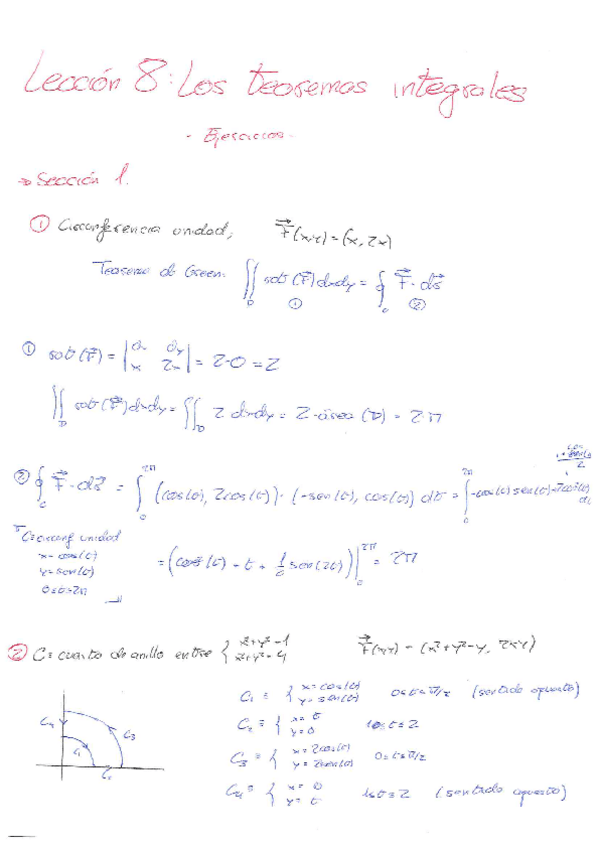 Lección 8: Los teoremas integrales
- Ejercicios -
→ Sección 1.
① Circunferencia unidad; F(x,y) = (x, 2x)
Teorema de Green: ∬_D rot(F) dxdy = ∮_C F · ds
① ②
① rot(F) = |dx dy; x 2x| = 2-0 = 2
∬_D rot(F) dxdy = ∬_D 2 dxdy = 2·área(D) = 2·π
② ∮_C F · ds = ∫_0^{2π} (cos(t), 2cos(t)) · (-sen(t), cos(t)) dt = ∫_0^{2π} -cos(t) sen(t) + 2cos²(t) dt
C = circunf unidad
x = cos(t)
y = sen(t)
0≤t≤2π
= ( + t + sen(2t)) |_0^{2π} = 2π
② C = cuarto de anillo entre { x²+y²=1
x²+y²=4 F(x,y) = (x²+y²-y, 2xy)
C₁ ≡ { x = cos(t)
y = sen(t) 0≤t≤π/2 (sentido opuesto)
C₂ ≡ { x = t
y = 0 1≤t≤2
C₃ ≡ { x = 2cos(t)
y = 2sen(t) 0≤t≤π/2
C₄ ≡ { x = 0
y = t 1≤t≤2 (sentido opuesto)
C₄ C₁ C₃